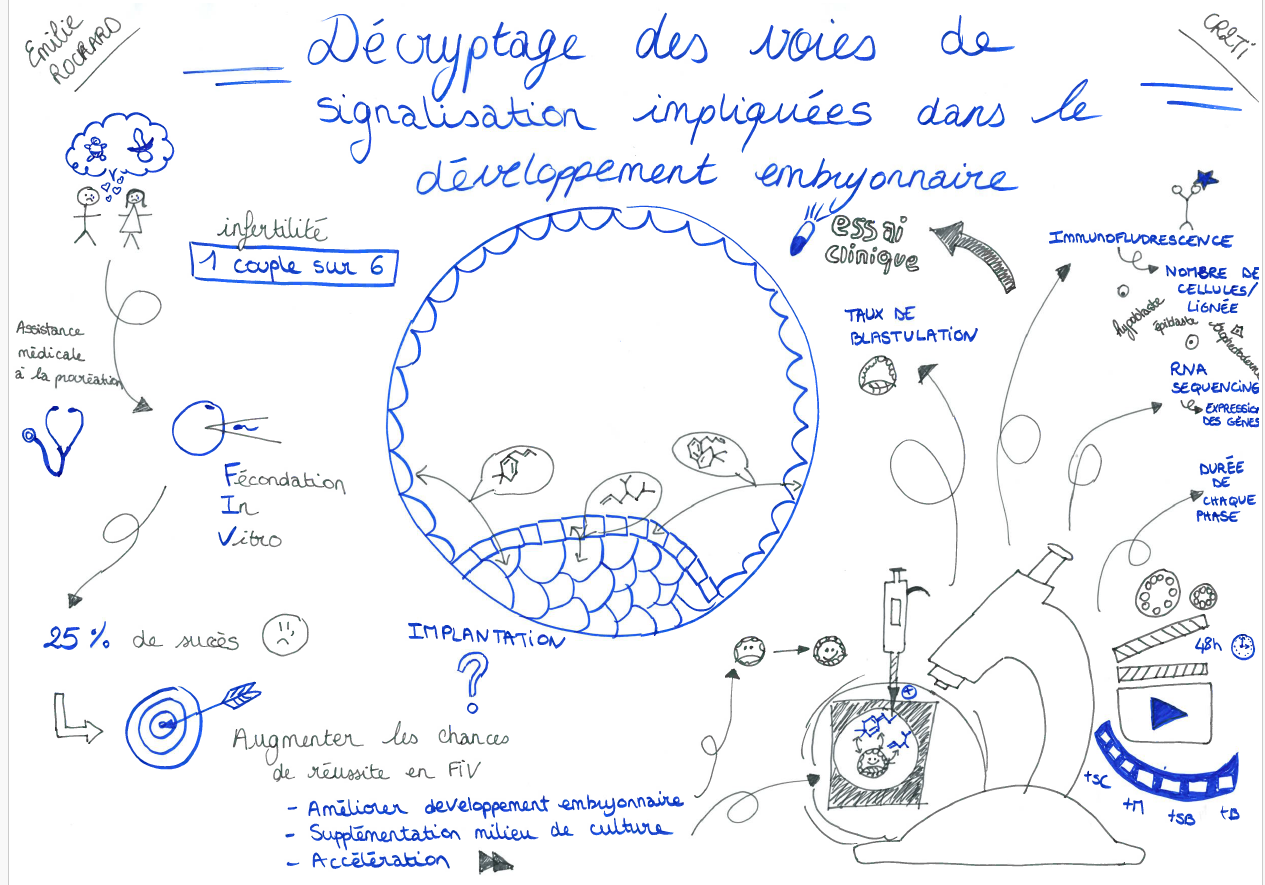 Emilie
ROCHARD
CR2TI
Décryptage des voies de
signalisation impliquées dans le
développement embryonnaire
infertilité
1 couple sur 6
Assistance
médicale
à la procréation
Fécondation
In
Vitro
25% de succès
IMPLANTATION
?
Augmenter les chances
de réussite en FIV
- Améliorer developpement embryonnaire
- Supplémentation milieu de culture
- Accélération
essai
clinique
TAUX DE
BLASTULATION
IMMUNOFLUORESCENCE
NOMBRE DE
CELLULES/
LIGNÉE
hypoblaste
épiblaste
RNA
SEQUENCING
EXPRESSION
DES GÈNES
DURÉE
DE
CHAQUE
PHASE
48h
+
+SC
+M
+SB
+B